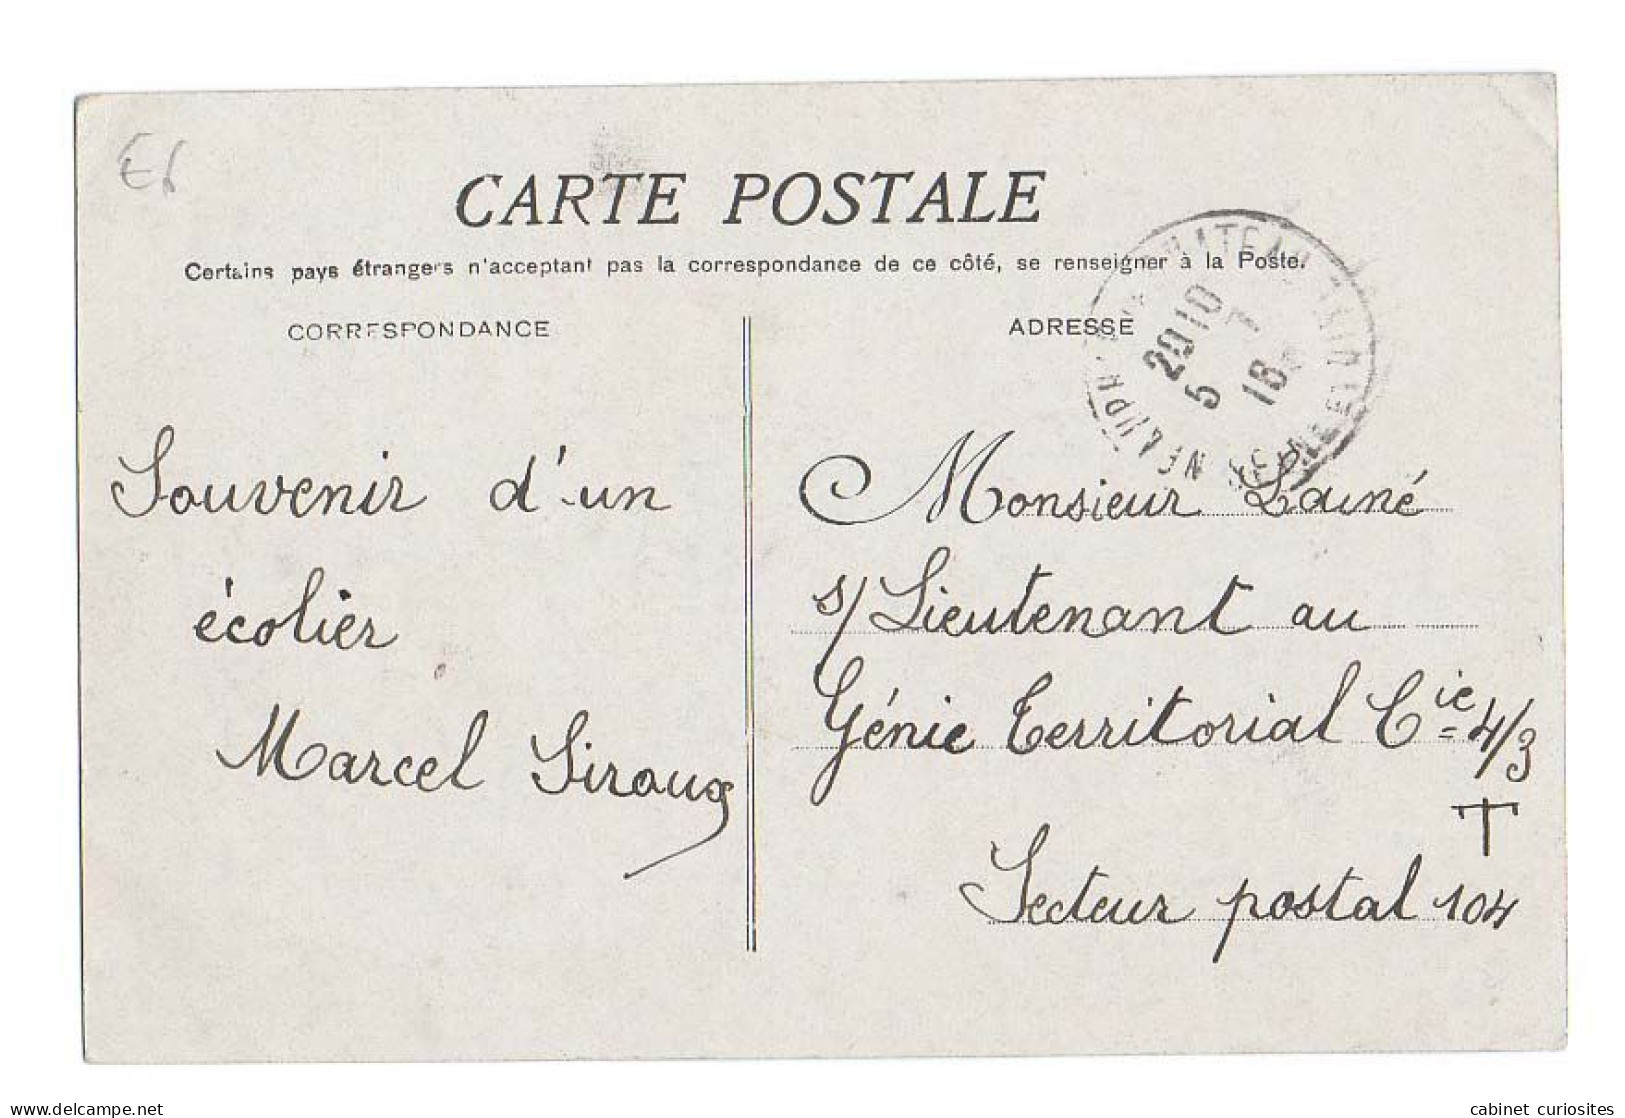 E6
CARTE POSTALE
Certains pays étrangers n'acceptent pas la correspondance de ce côté, se renseigner à la Poste.
CORRESPONDANCE
ADRESSE
20 10
5 - 7
18
Souvenir d'un
écolier
Marcel Siroux
Monsieur Lainé
s/Lieutenant au
Génie Territorial Cie 4/3
T
Secteur postal 104
delcampe.net
cabinet_curiosites